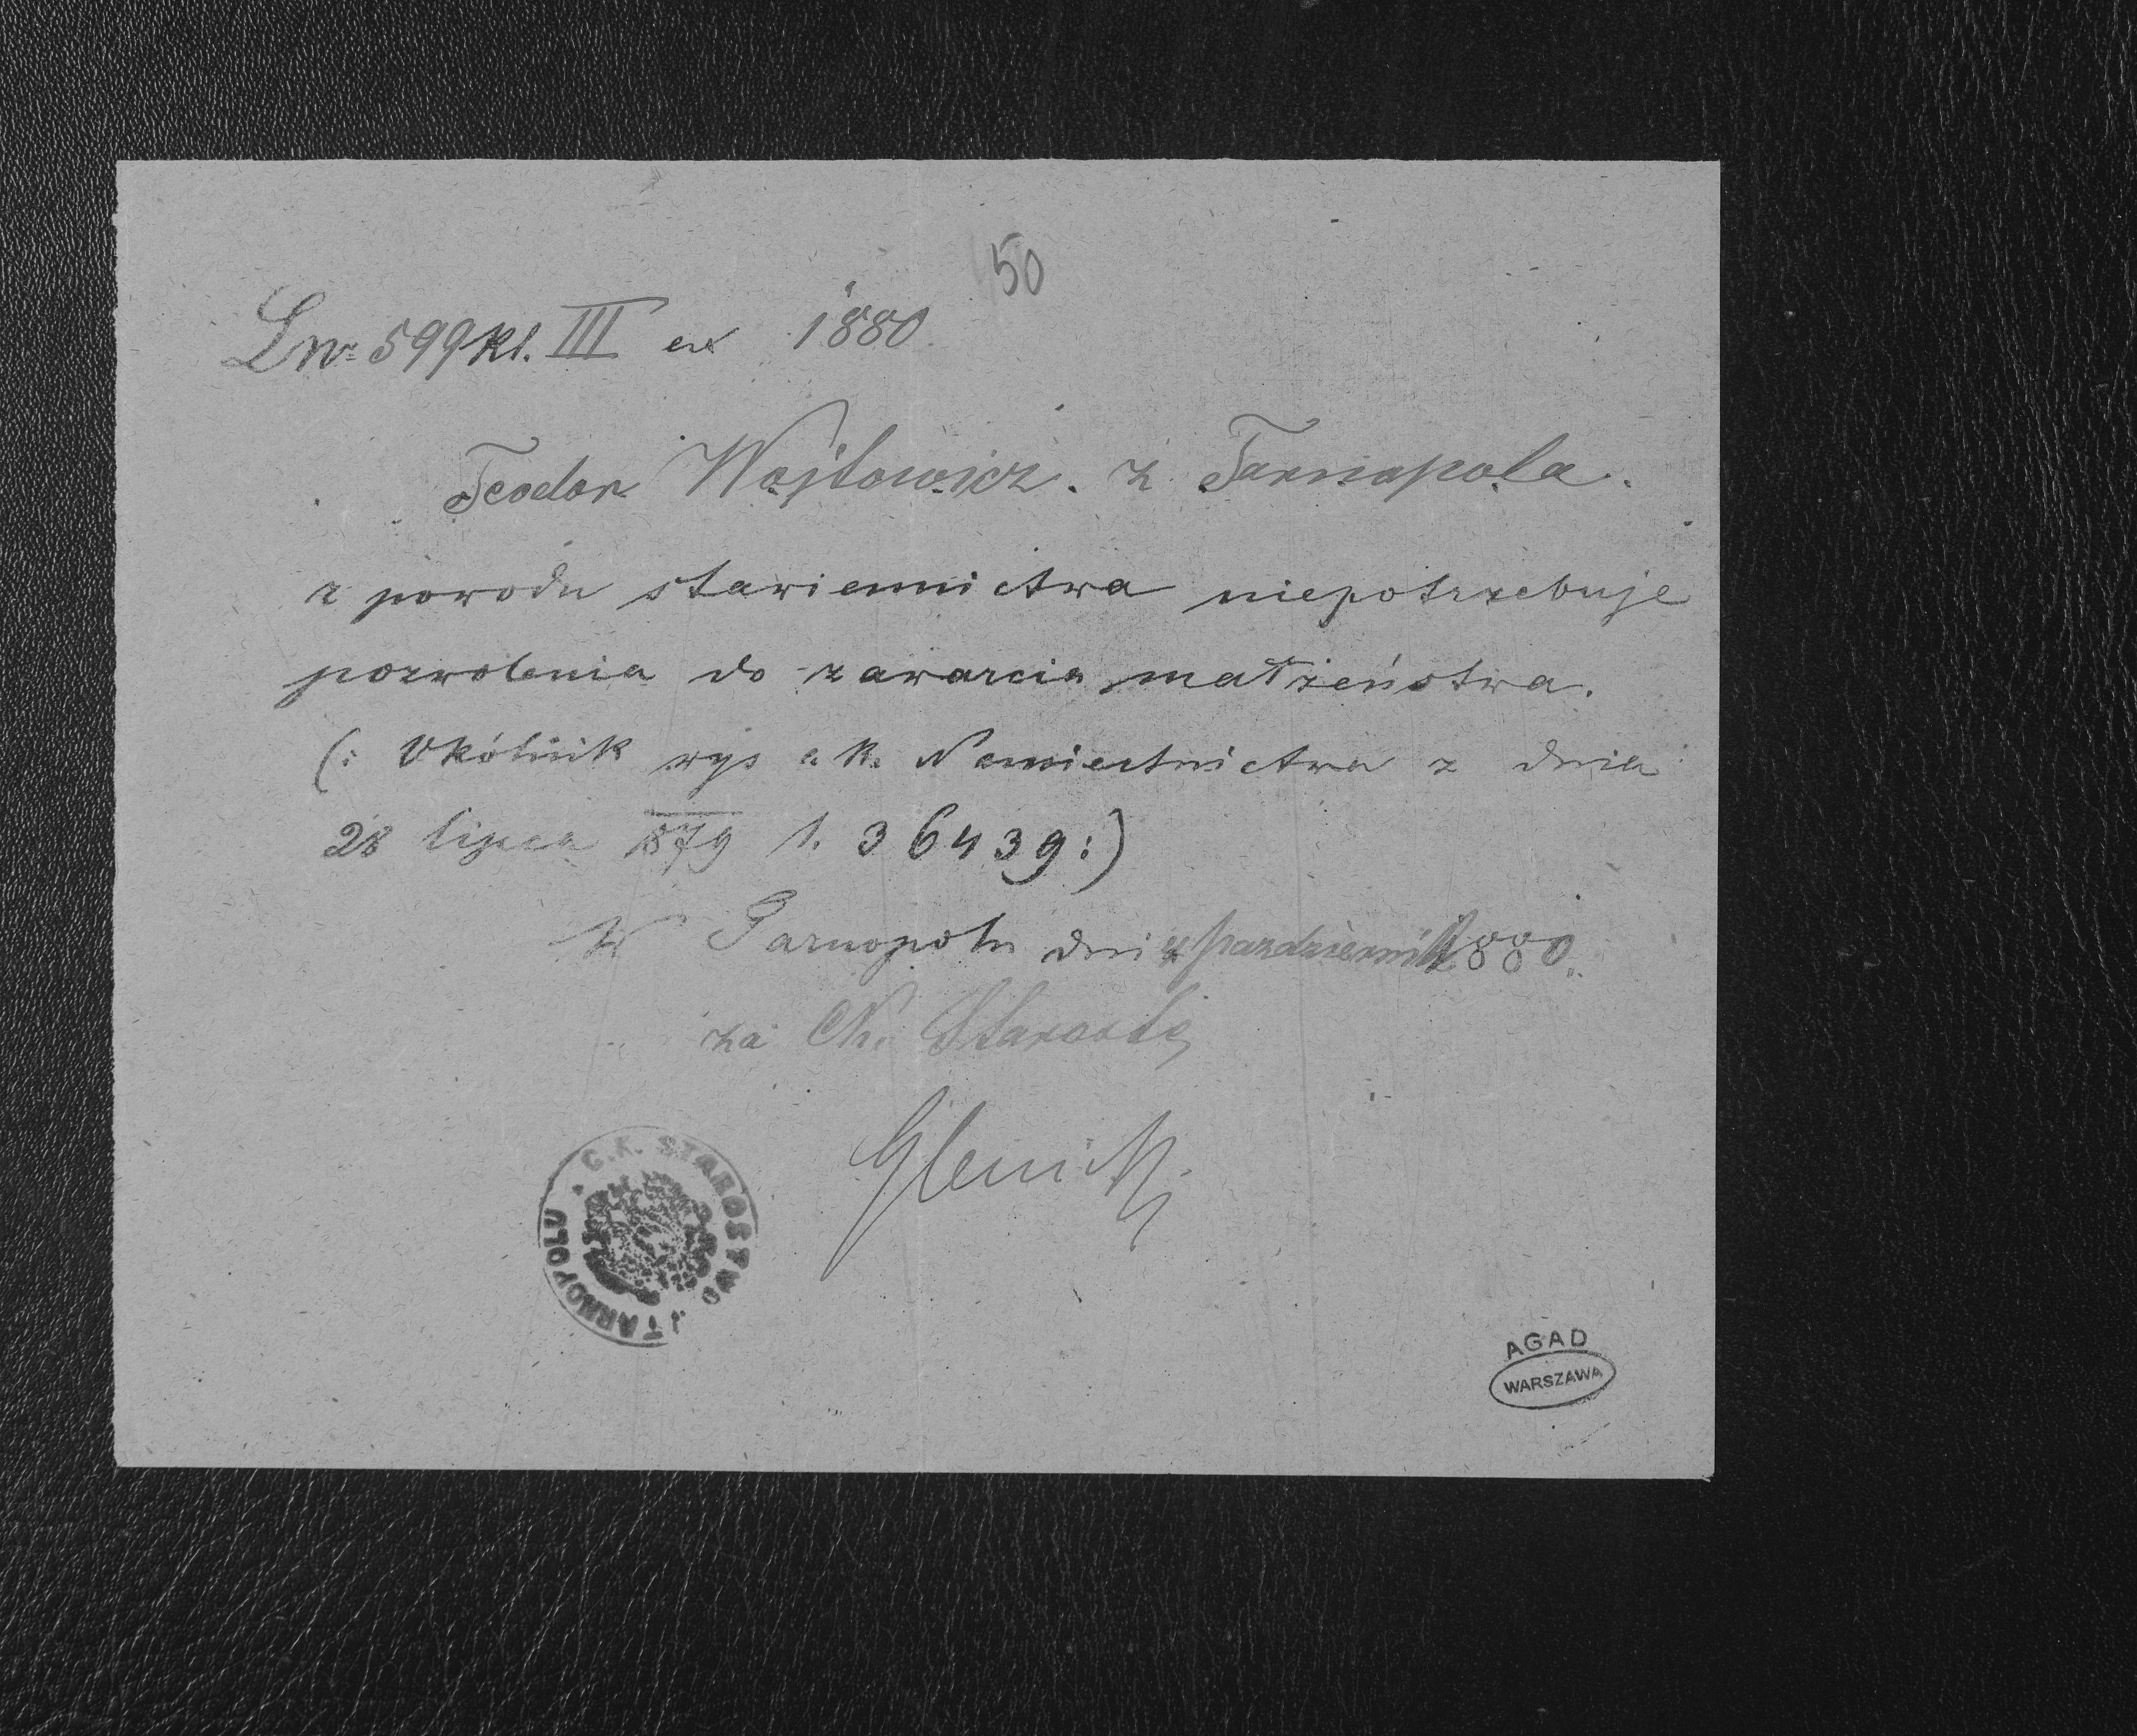 50
Lw: 599 kl. III ex 1880
Teodor Wojtowicz. z Tarnopola.
z powodu stawiennictwa niepotrzebuje
pozwolenia do zawarcia małżeństwa.
(: Okólnik wys c. k. Namiestnictwa z dnia
28 lipca 1879 l. 36439:)
W Tarnopolu dnia październik 1880.
za Ck. Starostę
C.K. STAROSTWO
TARNOPOLU
AGAD
WARSZAWA